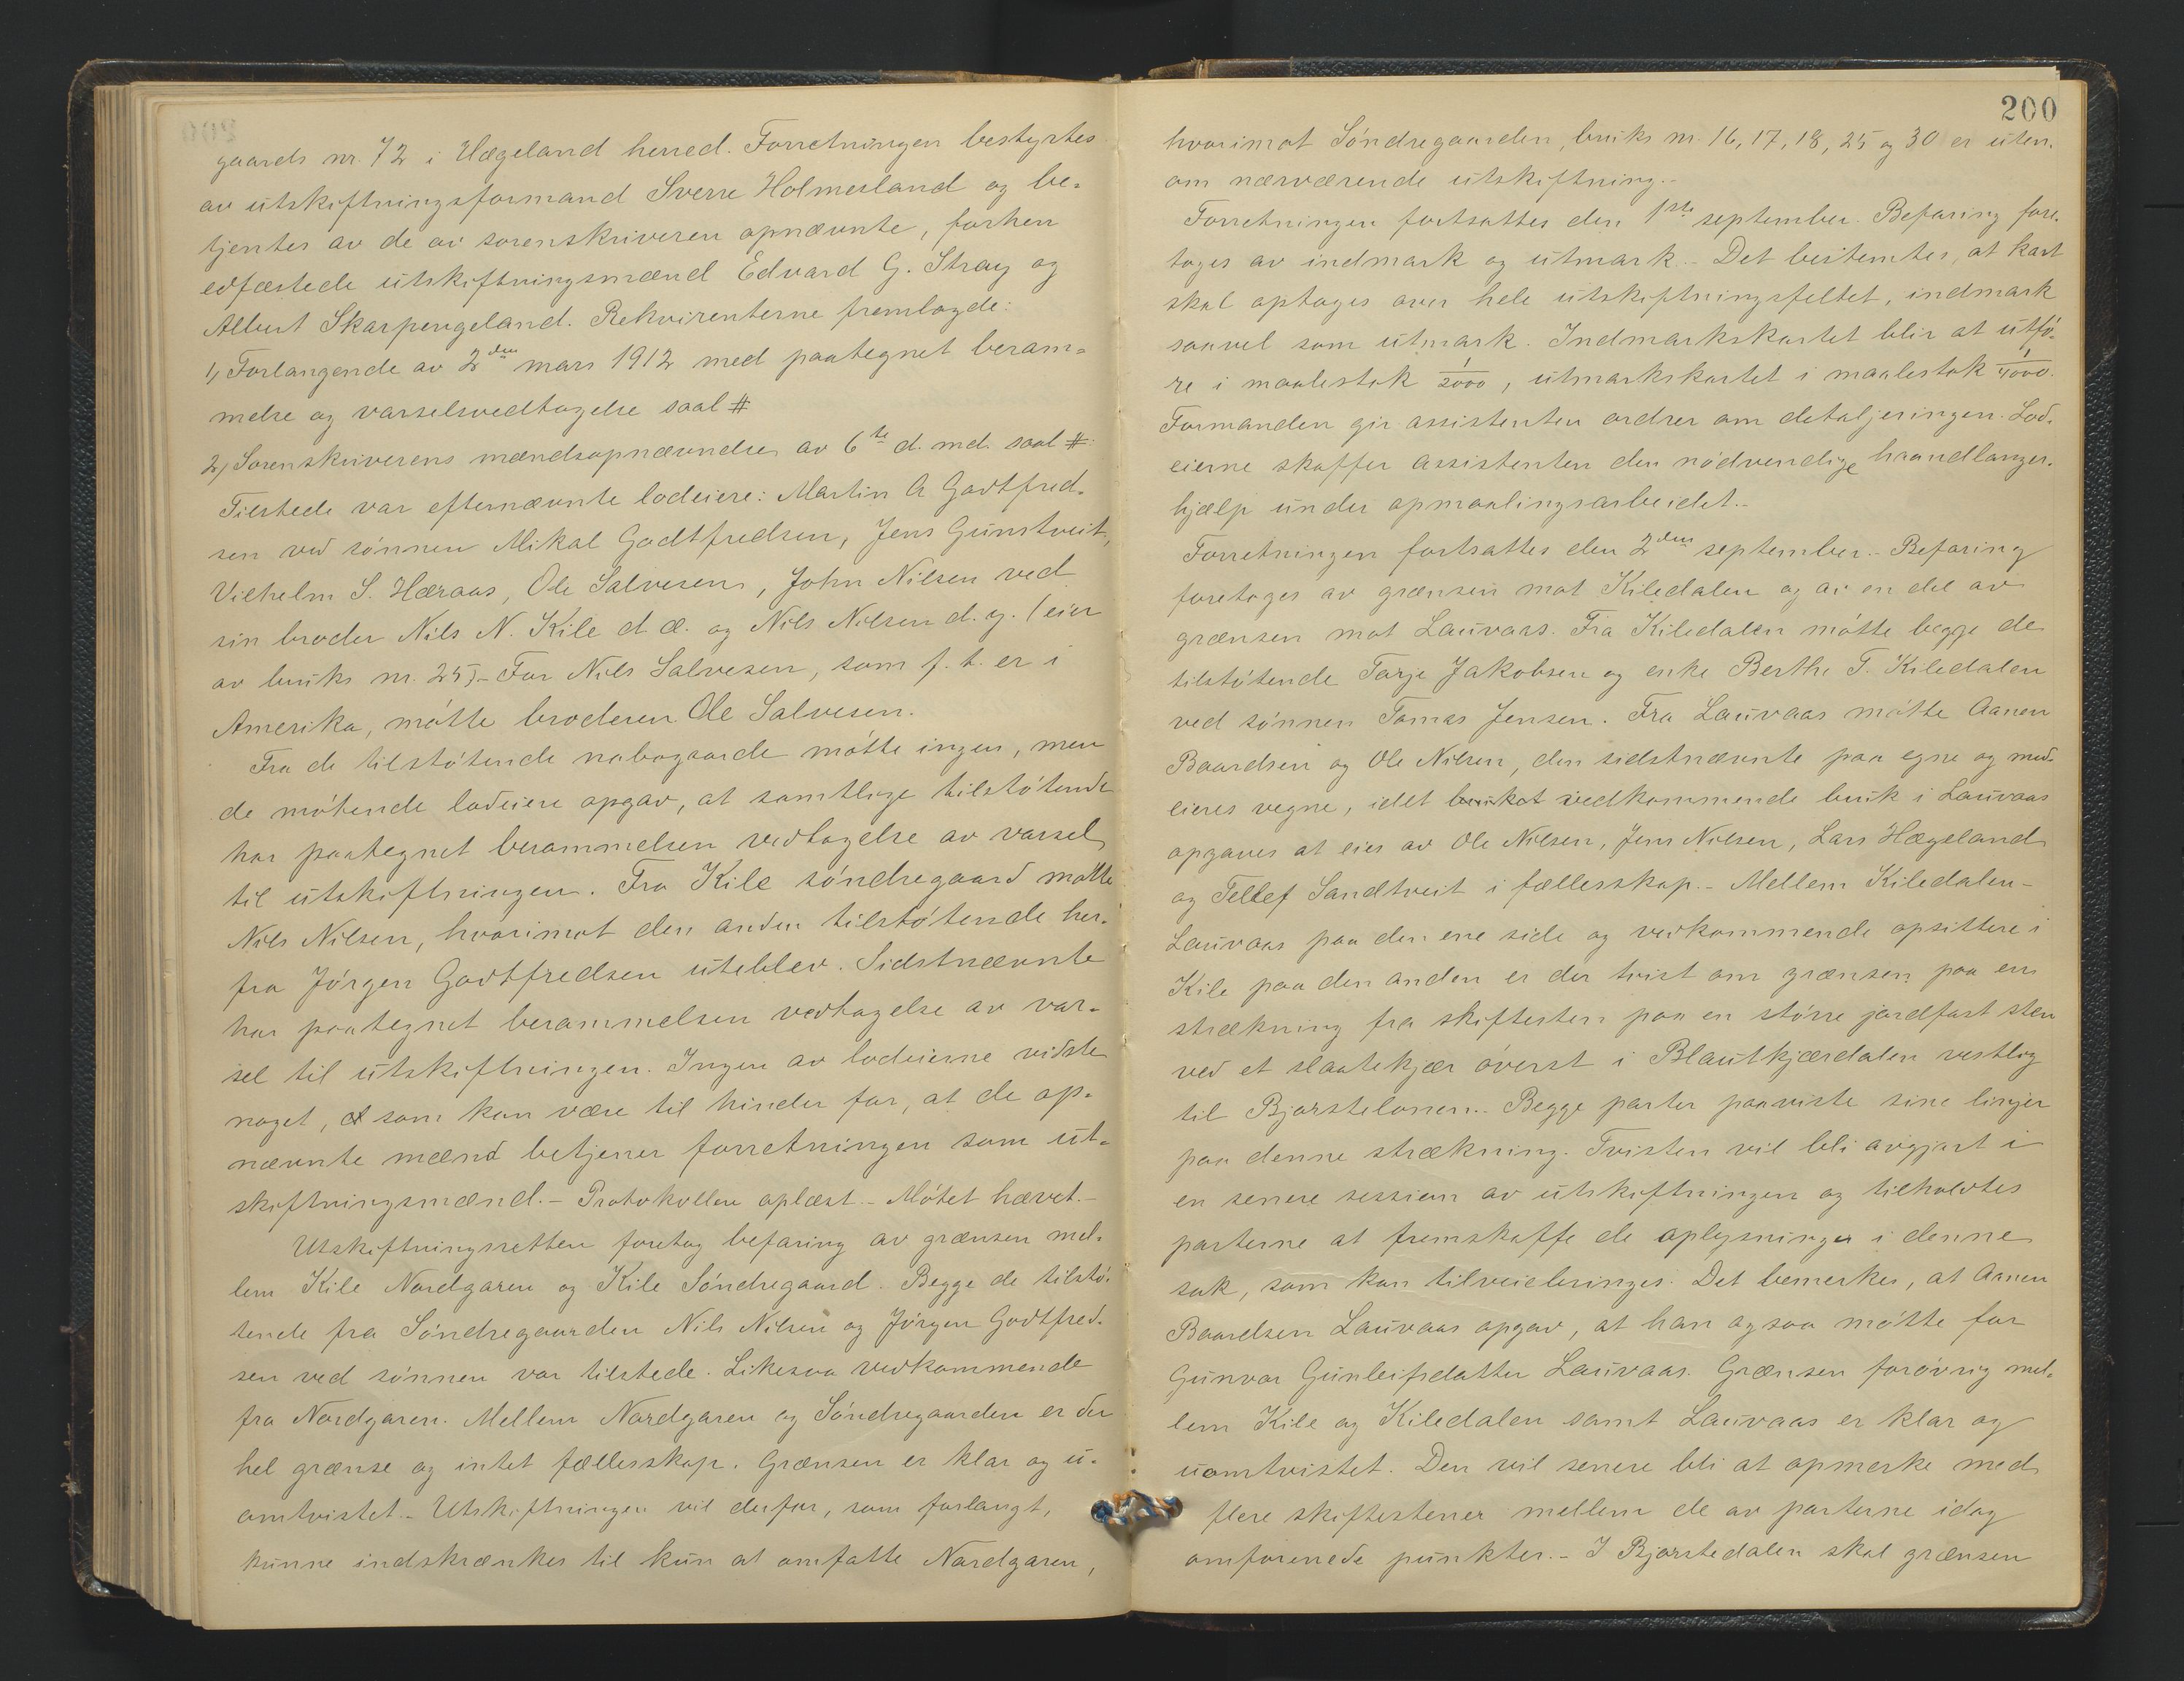 gaards nr. 72 i Hægeland herred. Forretningen bestyrtes
av utskiftningsformand Sverre Holmesland og be-
tjentes av de av sorenskriveren opnævnte, forhen
edfæstede utskiftningsmænd Edvard G. Stray og
Albert Skarpengeland. Rekvirenterne fremlagde:
1, Forlangende av 2den mars 1912 med paategnet beram-
melse og varselsvedtagelse saal #
2, Sorenskriverens mændsopnævndelse av 6te d. md. saal #:
Tilstede var efternævnte lodeiere: Martin A Godtfred-
sen ved sönnen Mikal Godtfredsen, Jens Gunstveit,
Vilhelm S. Hæraas, Ole Salvesen, John Nilsen ved
sin broder Nils N. Kile d. æ. og Nils Nilsen d. y. (eier
av bruks nr. 25). - For Nils Salvesen, som f. t. er i
Amerika, mötte broderen Ole Salvesen.
Fra de tilstötende nabogaarde mötte ingen, men
de mötende lodeiere opgav, at samtlige tilstötende
har paategnet berammelsen vedtagelse av varsel
til utskiftningen. Fra Kile söndregaard mötte
Nils Nilsen, hvorimot den anden tilstötende her-
fra Jörgen Godtfredsen uteblev. Sidstnævnte
har paategnet berammelsen vedtagelse av var-
sel til utskiftningen. Ingen av lodeierne vidste
noget, som kan være til hinder for, at de op-
nævnte mænd betjener forretningen som ut-
skiftningsmænd. - Protokollen oplæst. - Mötet hævet. -
Utskiftningsretten foretog befaring av grænsen mel-
lem Kile Nordgaren og Kile Söndregaard. Begge de tilstö-
tende fra Söndregaarden Nils Nilsen og Jörgen Godtfred-
sen ved sönnen var tilstede. Likesaa vedkommende
fra Nordgaren. Mellem Nordgaren og Söndregaarden er der
hel grænse og intet fællesskap. Grænsen er klar og u-
omtvistet. - Utskiftningen vil derfor, som forlangt,
kunne indskrænkes til kun at omfatte Nordgaren,
200
hvorimot Söndregaarden, bruks nr. 16, 17, 18, 25 og 30 er uten-
om nærværende utskiftning. -
Forretningen fortsattes den 1ste september. Befaring fore-
toges av indmark og utmark. - Det bestemtes, at kart
skal optages over hele utskiftningsfeltet, indmark
saavel som utmark. Indmarkskartet blir at utfö-
re i maalestok 1/2000, utmarkskartet i maalestok 1/4000.
Formanden gir assistenten ordrer om detaljeringen. Lod-
eierne skaffer assistenten den nödvendige haandlanger-
hjælp under opmaalingsarbeidet. -
Forretningen fortsattes den 2den september. - Befaring
foretoges av grænsen mot Kiledalen og av en del av
grænsen mot Lauvaas. Fra Kiledalen mötte begge de
tilstötende Tarje Jakobsen og enke Berthe T. Kiledalen
ved sönnen Tomas Jensen. Fra Lauvaas mötte Aanen
Baardsen og Ole Nilsen, den sidstnævnte paa egne og med-
eieres vegne, idet bruket vedkommende bruk i Lauvaas
opgaves at eies av Ole Nilsen, Jens Nilsen, Lars Hægeland
og Tellef Sandtveit i fællesskap. - Mellem Kiledalen -
Lauvaas paa den ene side og vedkommende opsittere i
Kile paa den anden er der tvist om grænsen paa en
strækning fra skiftesten paa en större jordfast sten
ved et slaatekjær överst i Blautkjærdalen vestlig
til Bjorstelonen. - Begge parter paaviste sine linjer
paa denne strækning. Tvisten vil bli avgjort i
en senere session av utskiftningen og tilholdtes
parterne at fremskaffe de oplysninger i denne
sak, som kan tilveiebringes. Det bemerkes, at Aanen
Baardsen Lauvaas opgav, at han ogsaa mötte for
Gunvor Gunleifsdatter Lauvaas. Grænsen forövrig mel-
lem Kile og Kiledalen samt Lauvaas er klar og
uomtvistet. Den vil senere bli at opmerke med
flere skiftestener mellem de av parterne idag
omforenede punkter. - I Bjorstedalen skal grænsen